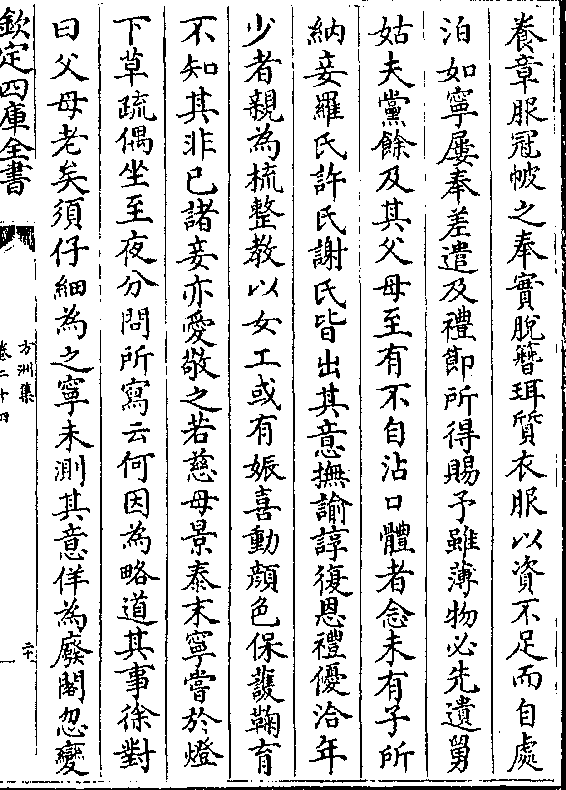 養章服冠帔之奉實脫簪珥質衣服以資不足而自處
泊如寧屢奉差遣及禮節所得賜予雖薄物必先遺舅
姑夫黨餘及其父母至有不自沾口體者念未有子所
納妾羅氏許氏謝氏皆出其意撫諭諄復恩禮優洽年
少者親為梳整教以女工或有娠喜動顏色保護鞠育
不知其非已諸妾亦愛敬之若慈母景泰末寧嘗於燈
下草疏偶坐至夜分問所寫云何因為略道其事徐對
曰父母老矣須仔細為之寧未測其意佯為廢閣忽變
欽定四庫全書
方洲集
卷二十四
二十